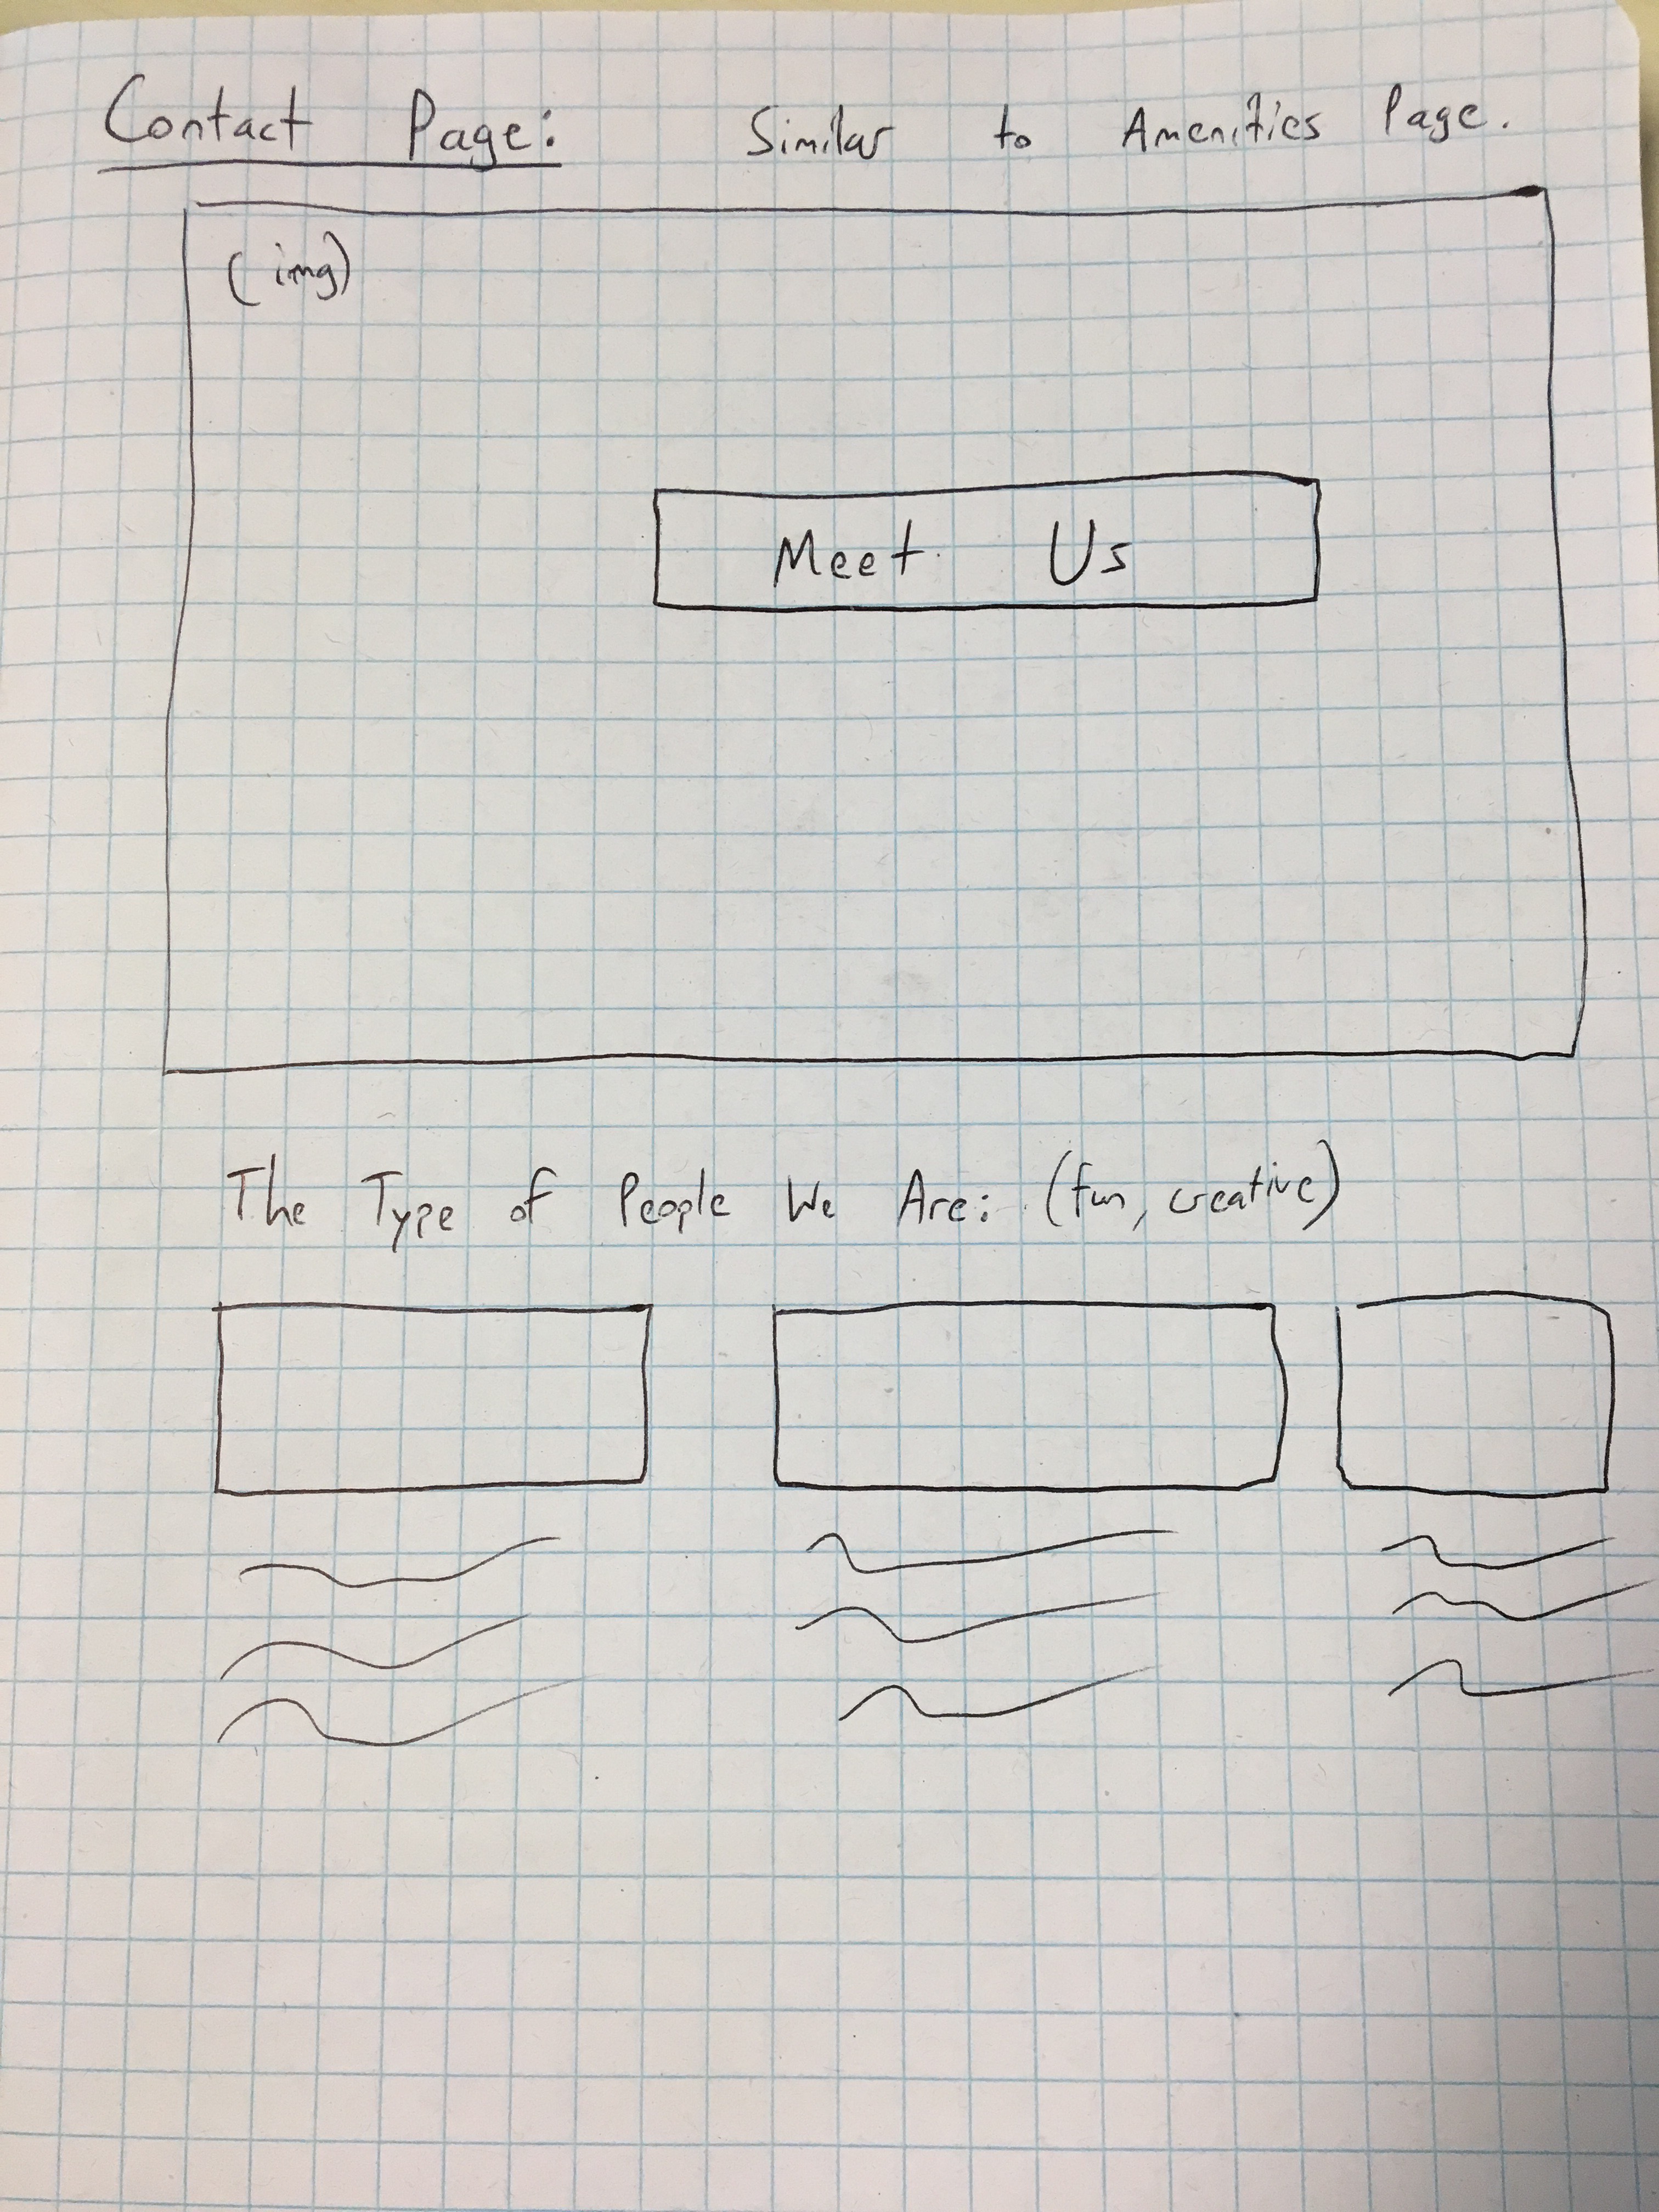 Contact Page: Similar to Amenities Page.
(img)
Meet Us
The Type of People We Are: (fun, creative)